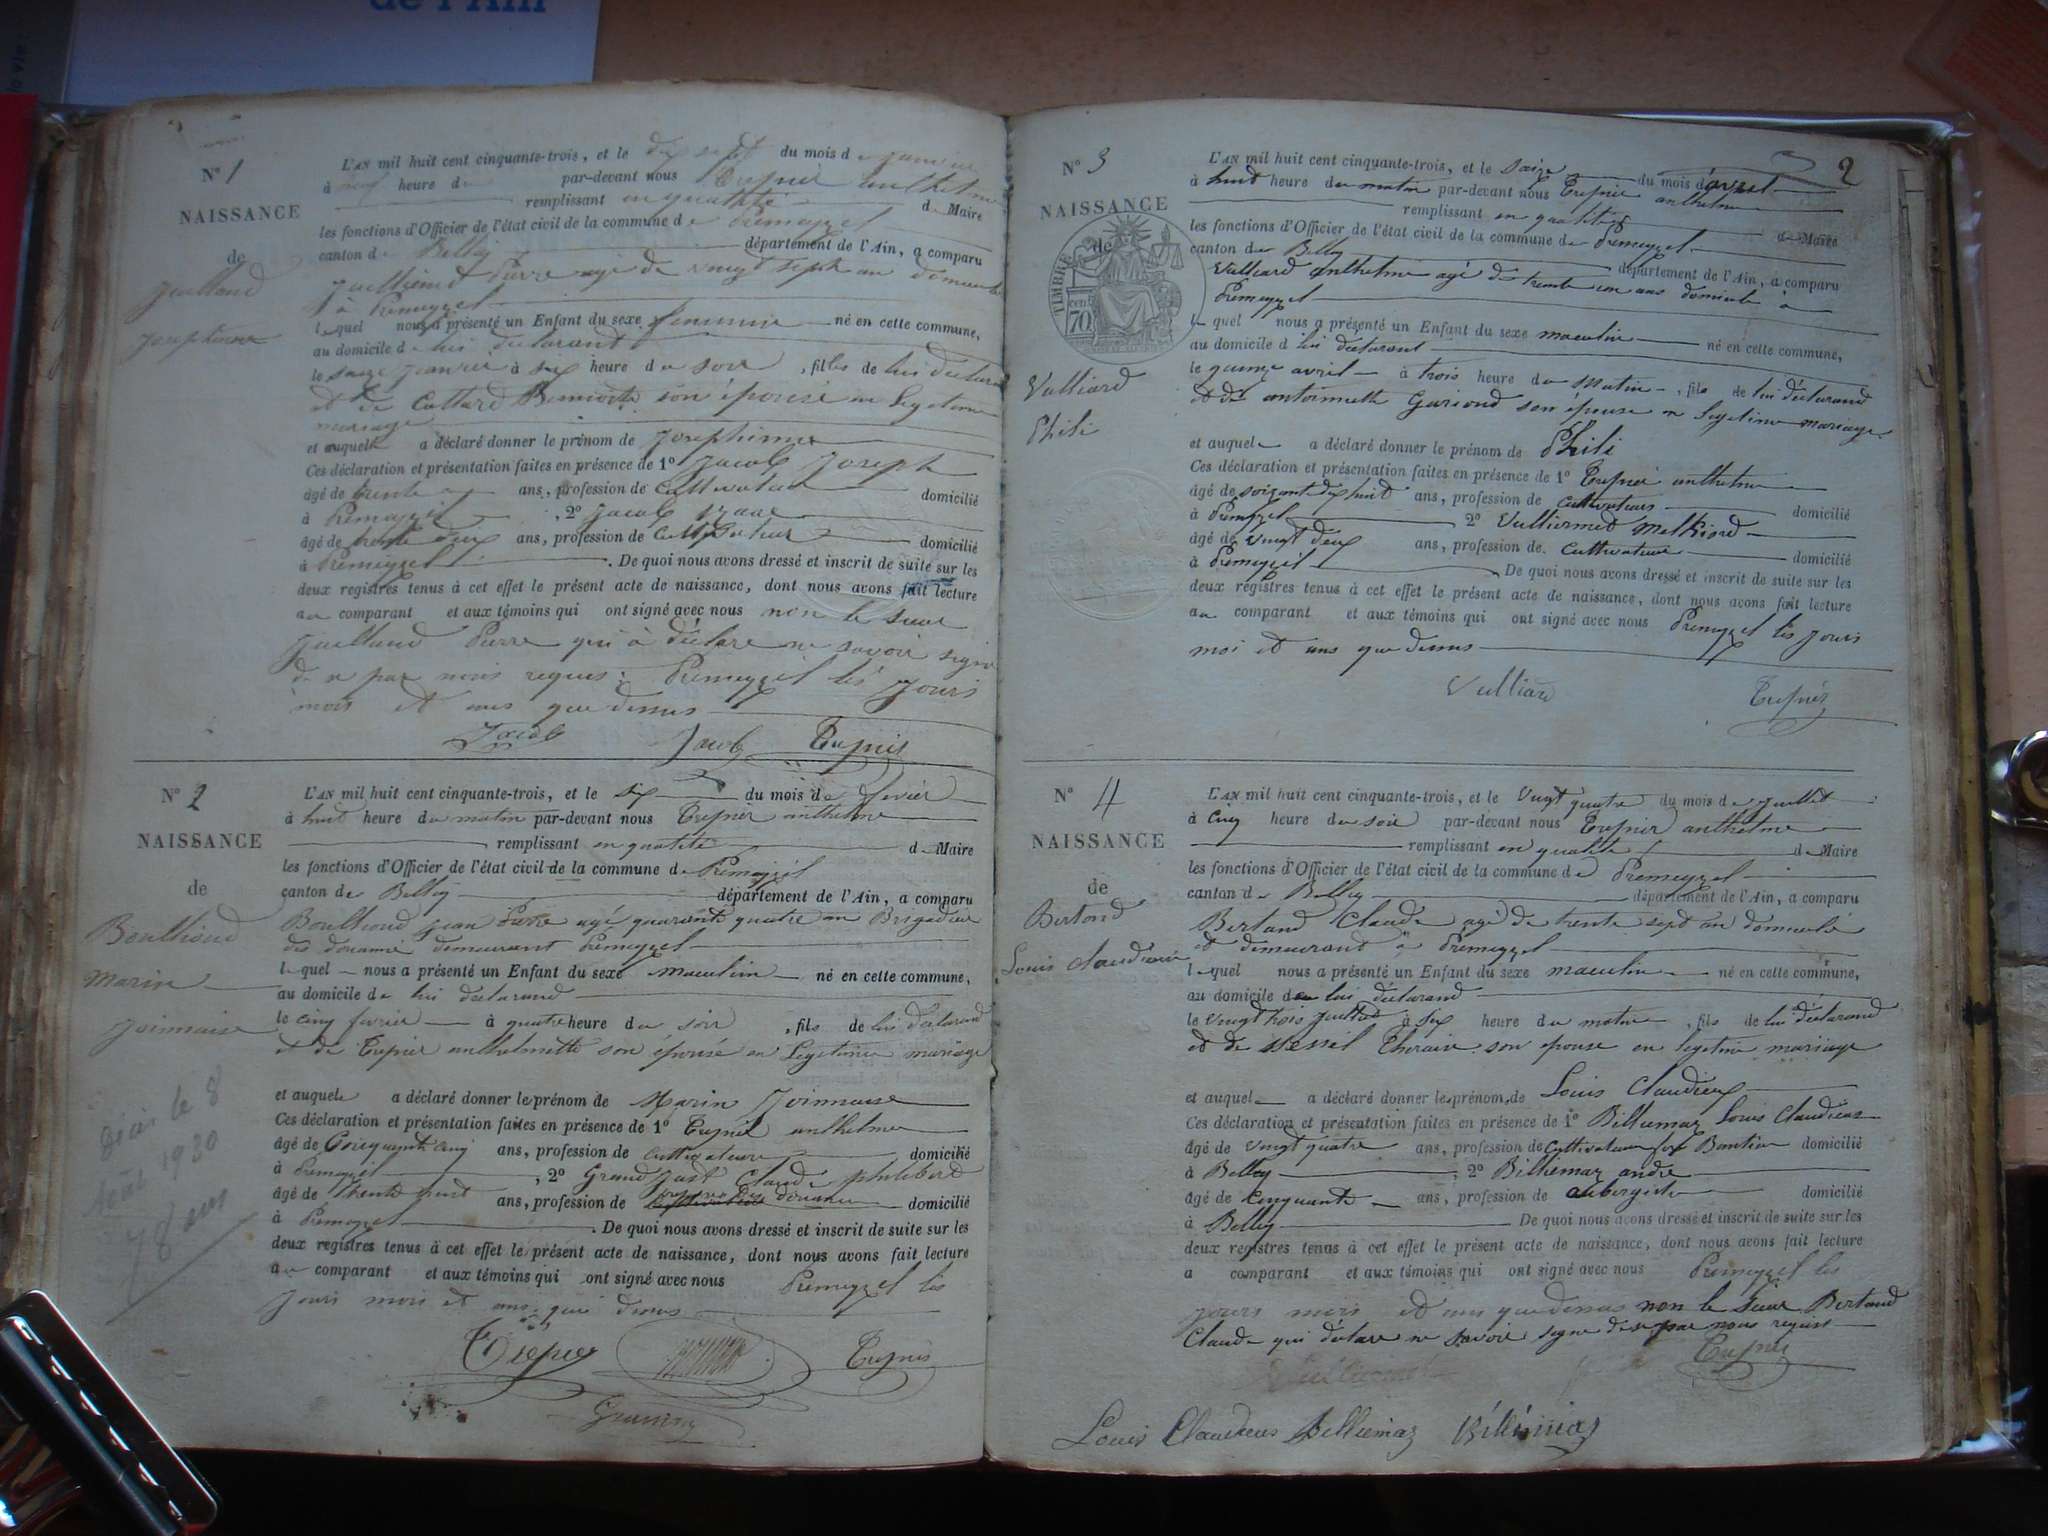 de l'Ain
N° 1
NAISSANCE
de
Juilland
Josephinne
L'AN mil huit cent cinquante-trois, et le dix sept du mois de janvier
à neuf heure du par-devant nous Trepier anthelme
remplissant en qualité de Maire
les fonctions d'Officier de l'état civil de la commune de Prémeyzel
canton de Belley département de l'Ain, a comparu
Pierre agé de vingt sept an
à Prémeyzel
lequel nous a présenté un Enfant du sexe féminin né en cette commune,
au domicile de lui déclarant
le saize janvier à six heure du soir, filles de lui déclarant
et de son épouse en Legetime
mariage
et auquel a déclaré donner le prénom de Josephinne
Ces déclaration et présentation faites en présence de 1° Jacob Joseph
âgé de trente ans, profession de cultivateur domicilié
à Prémeyzel, 2° Jacob
âgé de trente deux ans, profession de cultivateur domicilié
à Prémeyzel. De quoi nous avons dressé et inscrit de suite sur les
deux registres tenus à cet effet le présent acte de naissance, dont nous avons fait lecture
au comparant et aux témoins qui ont signé avec nous non le sieur
Juilland Pierre qui à déclare ne savoir signé
de ce par nous requis; Prémeyzel lés jours
mois et ans que dessus
Jacob Jacob Trepier
N° 2
NAISSANCE
de
Bouthioud
Marin
Joinnaise
Décès le 8
Août 1930
78 ans
L'AN mil huit cent cinquante-trois, et le six du mois de fevrier
à huit heure du matin par-devant nous Trepier anthelme
remplissant en qualité de Maire
les fonctions d'Officier de l'état civil de la commune de Prémeyzel
canton de Belley département de l'Ain, a comparu
Bouthioud jean Pierre agé quarante quatre an Brigadier
des douanne demeurant Prémeyzel
lequel nous a présenté un Enfant du sexe masculin né en cette commune,
au domicile de lui déclarand
le cinq fevrier à quatre heure du soir, fils de lui déclarand
et de Trepier anthelmette son épouse en Legetime mariage
et auquel a déclaré donner le prénom de Marin Joinnaise
Ces déclaration et présentation faites en présence de 1° Trepier anthelme
âgé de Cinquante cinq ans, profession de cultivateur domicilié
à Prémeyzel, 2° Grand just Claude philiberd
âgé de trente huit ans, profession de douanne domicilié
à Prémeyzel. De quoi nous avons dressé et inscrit de suite sur les
deux registres tenus à cet effet le présent acte de naissance, dont nous avons fait lecture
au comparant et aux témoins qui ont signé avec nous Prémeyzel les
jours mois et ans que dessus
Trepier Trepier
N° 3
2
NAISSANCE
de
TIMBRE
70 cent
Vulliard
Phili
L'AN mil huit cent cinquante-trois, et le saize du mois d'avril
à huit heure du matin par-devant nous Trepier anthelme
remplissant en qualité de Maire
les fonctions d'Officier de l'état civil de la commune de Prémeyzel
canton de Belley département de l'Ain, a comparu
Vulliard anthelme agé de trente un ans domicilé à
Prémeyzel
lequel nous a présenté un Enfant du sexe masculin né en cette commune,
au domicile d lui déclarant
le quinze avril à trois heure du Matin, fils de lui déclarand
et de antoinnette Gariond son épouse en Legetime mariage
et auquel a déclaré donner le prénom de Phili
Ces déclaration et présentation faites en présence de 1° Trepier anthelme
âgé de soixante dix huit ans, profession de cultivateurs domicilié
à Prémeyzel 2° Vulliermed Melkiord
âgé de vingt deux ans, profession de cultivateur domicilié
à Prémeyzel. De quoi nous avons dressé et inscrit de suite sur les
deux registres tenus à cet effet le présent acte de naissance, dont nous avons fait lecture
au comparant et aux témoins qui ont signé avec nous Prémeyzel lés jours
moi et ans que dessus
Vulliard Trepier
N° 4
NAISSANCE
de
Bertand
Louis Claudieux
L'AN mil huit cent cinquante-trois, et le vingt quatre du mois de juillet
à cinq heure du soir par-devant nous Trepier anthelme
remplissant en qualité de Maire
les fonctions d'Officier de l'état civil de la commune de Prémeyzel
canton de Belley département de l'Ain, a comparu
Bertand Claude agé de trente sept an domicilé
et demeurant à Prémeyzel
lequel nous a présenté un Enfant du sexe masculin né en cette commune,
au domicile de lui déclarand
le vingt trois juillet à six heure du matin, fils de lui déclarand
et de son epouse en legetime mariage
et auquel a déclaré donner le prénom de Louis Claudieux
Ces déclaration et présentation faites en présence de 1° Billiemaz Louis Claudieus
âgé de vingt quatre ans, profession de cultivateur domicilié
à Belley, 2° Billiemaz andré
âgé de cinquante ans, profession de aubergiste domicilié
à Belley De quoi nous avons dressé et inscrit de suite sur les
deux registres tenus à cet effet le présent acte de naissance, dont nous avons fait lecture
a comparant et aux témoins qui ont signé avec nous Prémeyzel lés
jours mois et ans que dessus non le sieur Bertand
Claude qui déclare ne savoir signe de ce par nous requis
Trepier
Louis Claudieus Billiemaz Billiemaz